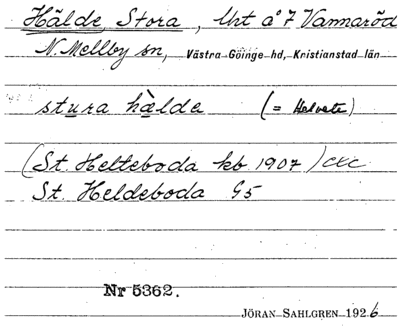 Hälde, Stora, Uht å 7 Vannaröd
N. Mellby sn, Västra Göinge hd, Kristianstad län
stura hæ̀lde (= Helvete)
(St. Helteboda kb 1907)
St. Heldeboda G5
Nr 5362.
JÖRAN SAHLGREN 1926